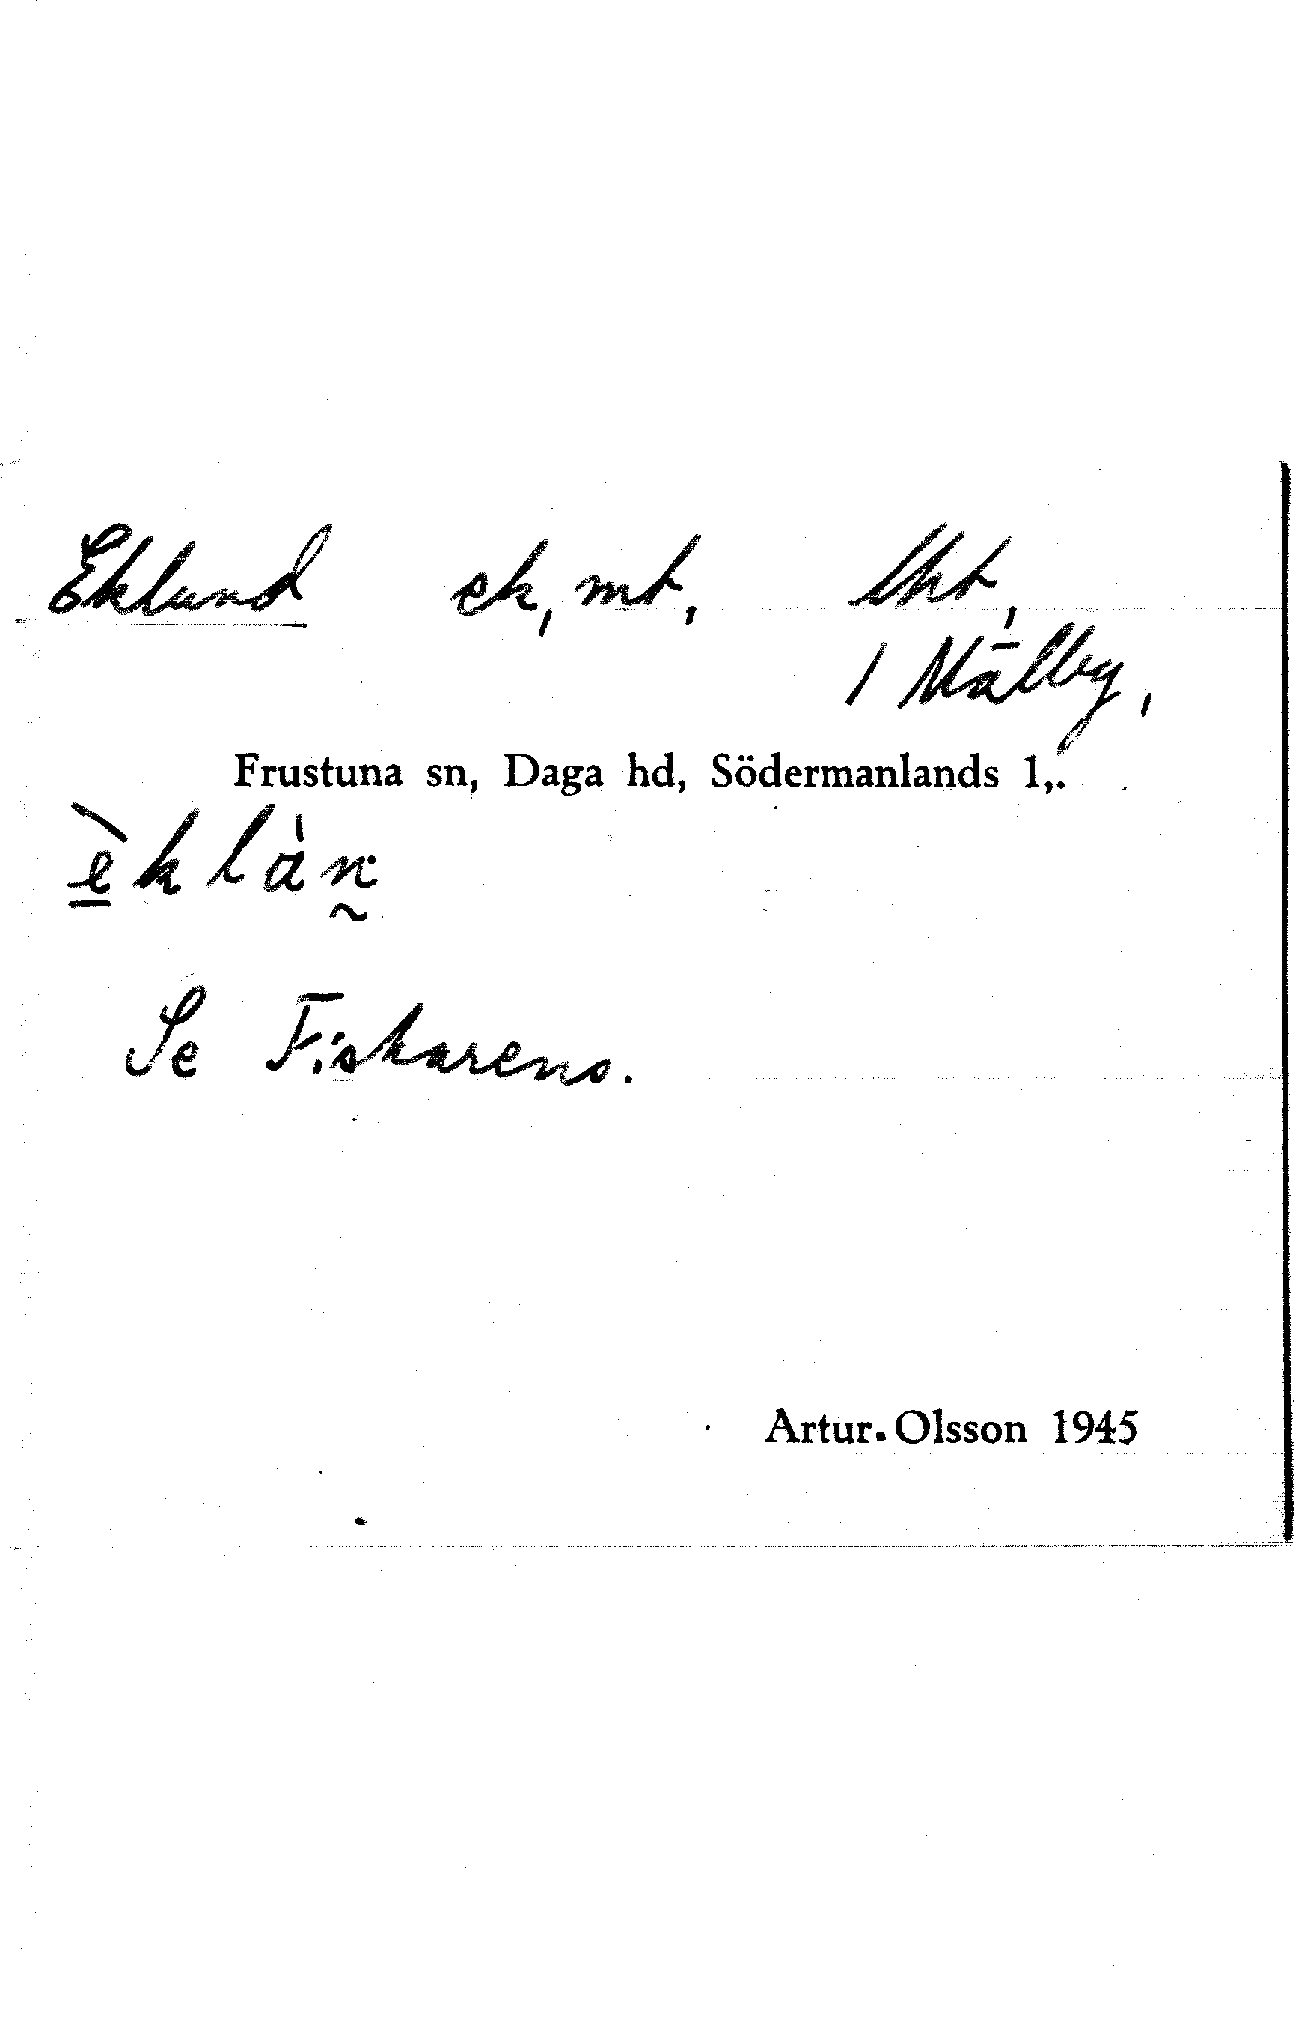 Eklund ek, mt, lht,
/ Mälby,
Frustuna sn, Daga hd, Södermanlands l,.
èklàn
Se Fiskarens.
Artur Olsson 1945